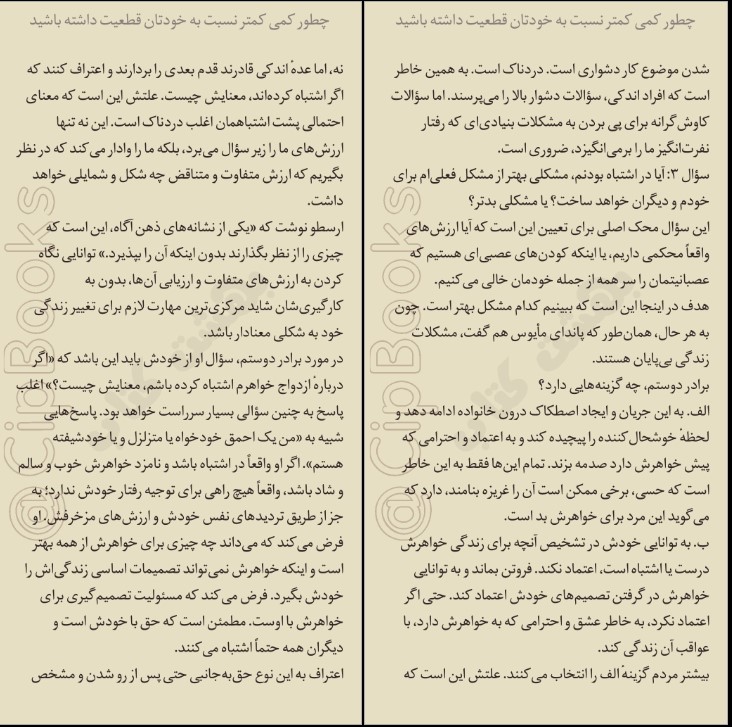 چطور کمی کمتر نسبت به خودتان قطعیت داشته باشید
نه، اما عدهٔ اندکی قادرند قدم بعدی را بردارند و اعتراف کنند که
اگر اشتباه کرده‌اند، معنایش چیست. علتش این است که معنای
احتمالی پشت اشتباهمان اغلب دردناک است. این نه تنها
ارزش‌های ما را زیر سؤال می‌برد، بلکه ما را وادار می‌کند که در نظر
بگیریم که ارزش متفاوت و متناقض چه شکل و شمایلی خواهد
داشت.
ارسطو نوشت که «یکی از نشانه‌های ذهن آگاه، این است که
چیزی را از نظر بگذارند بدون اینکه آن را بپذیرد.» توانایی نگاه
کردن به ارزش‌های متفاوت و ارزیابی آن‌ها، بدون به
کارگیری‌شان شاید مرکزی‌ترین مهارت لازم برای تغییر زندگی
خود به شکلی معنادار باشد.
در مورد برادر دوستم، سؤال او از خودش باید این باشد که «اگر
دربارهٔ ازدواج خواهرم اشتباه کرده باشم، معنایش چیست؟» اغلب
پاسخ به چنین سؤالی بسیار سرراست خواهد بود. پاسخ‌هایی
شبیه به «من یک احمق خودخواه یا متزلزل و یا خودشیفته
هستم». اگر او واقعاً در اشتباه باشد و نامزد خواهرش خوب و سالم
و شاد باشد، واقعاً هیچ راهی برای توجیه رفتار خودش ندارد؛ به
جز از طریق تردیدهای نفس خودش و ارزش‌های مزخرفش. او
فرض می‌کند که می‌داند چه چیزی برای خواهرش از همه بهتر
است و اینکه خواهرش نمی‌تواند تصمیمات اساسی زندگی‌اش را
خودش بگیرد. فرض می‌کند که مسئولیت تصمیم‌گیری برای
خواهرش با اوست. مطمئن است که حق با خودش است و
دیگران همه حتماً اشتباه می‌کنند.
اعتراف به این نوع حق‌به‌جانبی حتی پس از رو شدن و مشخص
چطور کمی کمتر نسبت به خودتان قطعیت داشته باشید
شدن موضوع کار دشواری است. دردناک است. به همین خاطر
است که افراد اندکی، سؤالات دشوار بالا را می‌پرسند. اما سؤالات
کاوش‌گرانه برای پی بردن به مشکلات بنیادی‌ای که رفتار
نفرت‌انگیز ما را برمی‌انگیزد، ضروری است.
سؤال ۳: آیا در اشتباه بودنم، مشکلی بهتر از مشکل فعلی‌ام برای
خودم و دیگران خواهد ساخت؟ یا مشکلی بدتر؟
این سؤال محک اصلی برای تعیین این است که آیا ارزش‌های
واقعاً محکمی داریم، یا اینکه کودن‌های عصبی‌ای هستیم که
عصبانیتمان را سر همه از جمله خودمان خالی می‌کنیم.
هدف در اینجا این است که ببینیم کدام مشکل بهتر است. چون
به هر حال، همان‌طور که پاندای مأیوس هم گفت، مشکلات
زندگی بی‌پایان هستند.
برادر دوستم، چه گزینه‌هایی دارد؟
الف. به این جریان و ایجاد اصطکاک درون خانواده ادامه دهد و
لحظهٔ خوشحال‌کننده را پیچیده کند و به اعتماد و احترامی که
پیش خواهرش دارد صدمه بزند. تمام این‌ها فقط به این خاطر
است که حسی، برخی ممکن است آن را غریزه بنامند، دارد که
می‌گوید این مرد برای خواهرش بد است.
ب. به توانایی خودش در تشخیص آنچه برای زندگی خواهرش
درست یا اشتباه است، اعتماد نکند. فروتن بماند و به توانایی
خواهرش در گرفتن تصمیم‌های خودش اعتماد کند. حتی اگر
اعتماد نکرد، به خاطر عشق و احترامی که به خواهرش دارد، با
عواقب آن زندگی کند.
بیشتر مردم گزینهٔ الف را انتخاب می‌کنند. علتش این است که
@CipBooks
@CipBooks